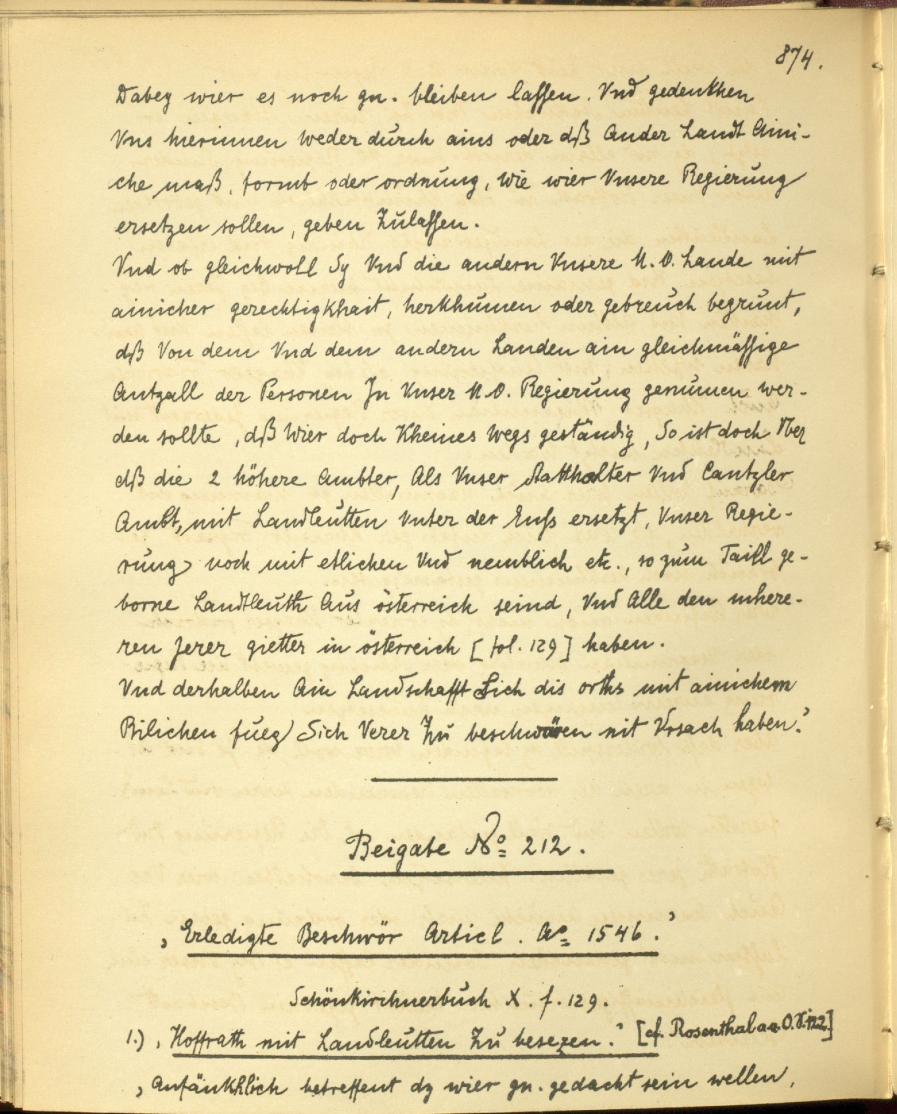 874.
Dabey wier es noch gn. bleiben lassen. Vnd gedenkhen
Vns hierinnen weder durch ains oder dß Ander Landt Aini-
che maß, formb oder ordnung, wie wier Vnsere Regierung
ersetzen sollen, geben Zulassen.
Vnd ob gleichwoll Sy Vnd die andern Vnsere N. O. Lande mit
ainicher gerechtigkhait, herkhumen oder gebreuch begrünt,
dß Von dem Vnd dem andern Landen ain gleichmässige
Antzall der Personen In Vnser N. O. Regierung genumen wer-
den sollte, dß Wier doch Kheines wegs geständig, So ist doch Vber
dß die 2 höhere Ambter, Als Vnser Statthalter Vnd Cantzler
Ambt, mit Landleutten Vnter der Enss ersetzt, Vnser Regie-
rung noch mit etlichen Vnd nemblich etc., so zum Taill ge-
borne Landleuth Aus österreich seind, Vnd Alle den mhere-
ren Jerer gietter in österreich [fol. 129] haben.
Vnd derhalben Ain Landschafft Sich dis orths mit ainichem
Bilichen fueg Sich Verer Zu beschwären nit Vrsach haben.'
Beigabe No. 212.
'Erledigte Beschwör Articl. Ao. 1546.'
Schönkirchnerbuch X. f. 129.
1.) 'Hoffrath mit Landleutten Zu besezen.' [cf. Rosenthal a. a. O. S. 122]
'Anfänkhlich betreffent dz wier gn. gedacht sein wellen,